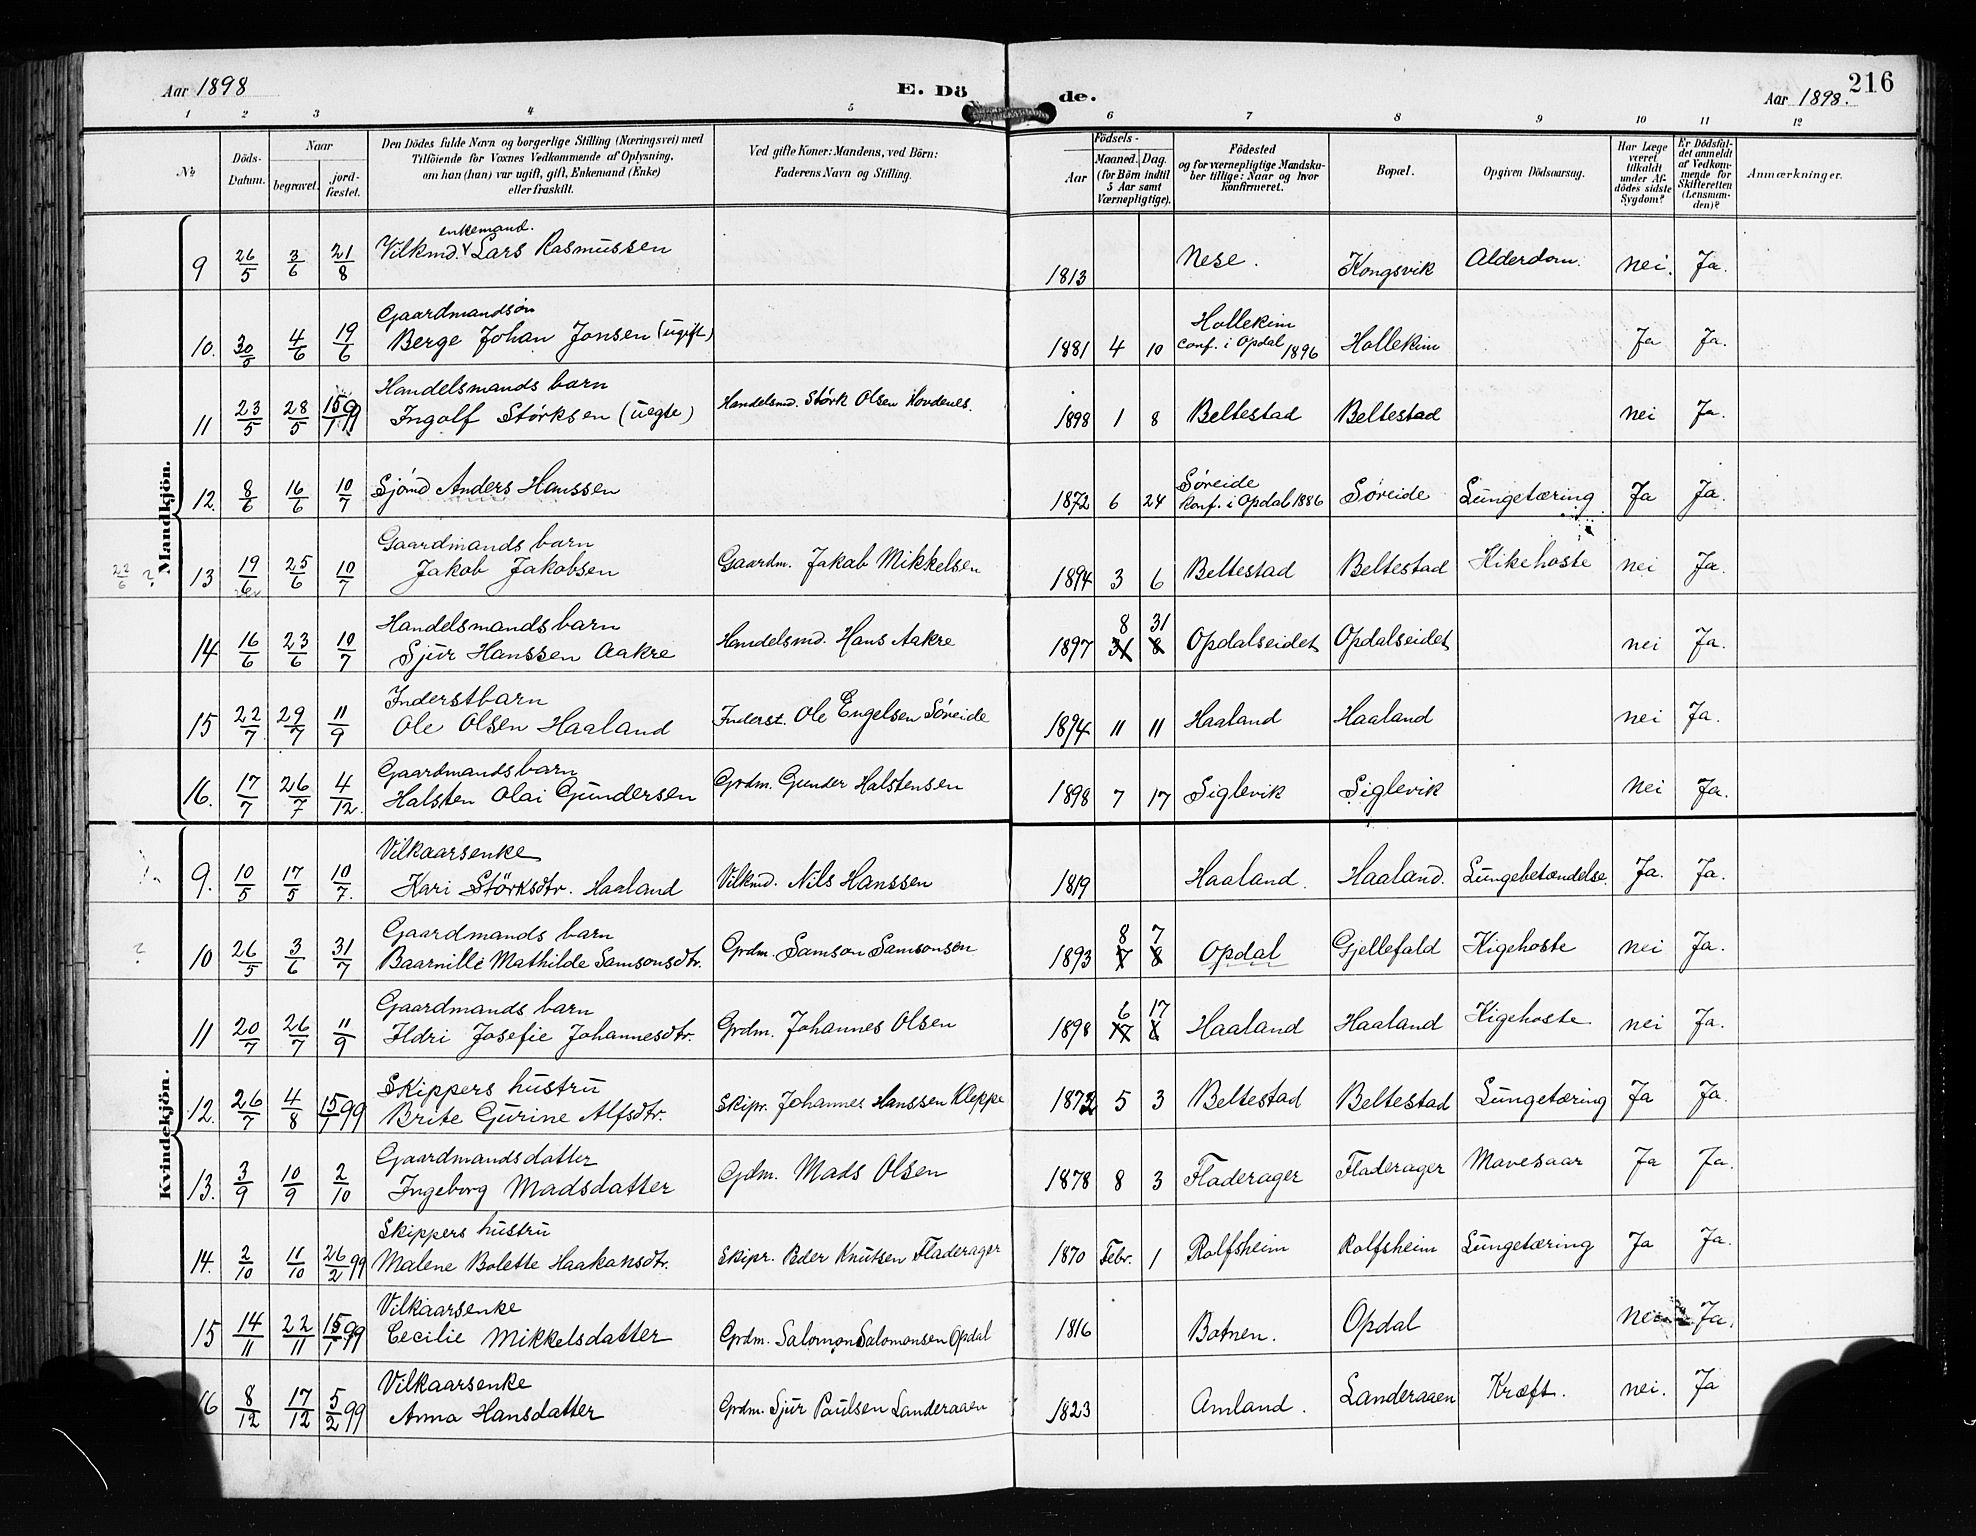 Aar 1898 E. Dö de. Aar 1898. 216
1 2 3 4 5 6 7 8 9 10 11 12
No. Döds-Datum. Naar begravet. jord-fæstet. Den Dödes fulde Navn og borgerlige Stilling (Næringsvei) med Tilföiende for Voxnes Vedkommende af Oplysning, om han (hun) var ugift, gift, Enkemand (Enke) eller fraskilt. Ved gifte Koner: Mandens, ved Börn: Faderens Navn og Stilling. Födsels- Aar Maaned. Dag. (for Börn indtil 5 Aar samt Værnepligtige). Födested og for værnepligtige Mandskaber tillige: Naar og hvor konfirmeret. Bopæl. Opgiven Dödsaarsag. Har Læge været tilkaldt under Afdödes sidste Sygdom? Er Dödsfaldet anmeldt af Vedkommende for Skifteretten (Lensmanden)? Anmærkninger.
Mandkjön.
enkemand.
9 26/5 3/6 21/8 Vilkmd. Lars Rasmussen 1813 Nese. Kongsvik Alderdom. nei. Ja.
Gaardmandsøn
10. 30/5 4/6 19/6 Berge Johan Jonsen (ugift) 1881 4 10 Hollekim conf. i Opdal 1896 Hollekim Ja Ja.
Handelsmands barn
11 23/5 28/5 15/1 99 Ingolf Störksen (uegte) Handelsmd. Störk Olsen Hovdenes. 1898 1 8 Beltestad Beltestad nei Ja.
12. 8/6 16/6 10/7 Sjömd Anders Hanssen 1872 6 24 Søreide Konf. i Opdal 1886 Søreide Lungetæring Ja Ja.
Gaardmands barn
22/6 ? 13 19/6 25/6 10/7 Jakob Jakobsen Gaardm. Jakob Mikkelsen 1894 3 6 Beltestad Beltestad Kikehoste nei Ja.
Handelsmandsbarn
14 16/6 23/6 10/7 Sjur Hanssen Aakre Handelsmd. Hans Aakre 1897 8 31 31 8 Opdalseidet Opdalseidet nei Ja.
Inderstbarn
15 22/7 29/7 11/9 Ole Olsen Haaland Inderst. Ole Engelsen Söreide 1894 11 11 Haaland Haaland nei Ja.
Gaardmandsbarn
16. 17/7 26/7 4/12. Halsten Olai Gundersen Grdm. Gunder Halstensen 1898 7 17 Siglevik Siglevik Nei Ja.
Kvindekjön.
Vilkaarsenke
9. 10/5 17/5 10/7. Kari Störksdtr. Haaland Vilkmd. Nils Hanssen 1819 Haaland. Haaland. Lungebetændelse. Ja. Ja.
Gaardmands barn
? 10 26/5 3/6 31/7 Baarnille Mathilde Samsonsdtr. Grdm. Samson Samsonsen 1893 8 7 7 8 Opdal Gjellefald Kigehoste nei Ja.
Gaardmands barn
11 20/7 26/7 11/9 Ildri Josefie Johannesdtr. Grdm. Johannes Olsen 1898 6 17 17 6 Haaland Haaland Kigehoste nei Ja.
Skippers hustru
12. 26/7 4/8 15/1 99 Brite Gurine Alfsdtr. Skipr. Johannes Hanssen Kleppe 1872 5 3 Beltestad Beltestad Lungetæring Ja Ja.
Gaardmandsdatter
13. 3/9 10/9 2/10 Ingeborg Madsdatter Gdm. Mads Olsen 1878 8 3 Fladerager Fladerager Mavesaar Ja Ja.
Skippers hustru
14. 2/10 11/10 26/2 99 Malene Bolette Haakonsdtr. Skipr. Peder Knutsen Fladerager 1870 Febr. 1 Rolfsheim Rolfsheim Lungetæring Ja Ja.
Vilkaarsenke
15 14/11 22/11 15/1 99 Cecilie Mikkelsdatter Grdm. Salomon Salomonsen Opdal 1816 Botnen. Opdal nei Ja.
Vilkaarsenke
16 8/12 17/12 5/2 99 Anna Hansdatter Grdm. Sjur Paulsen Landeraaen 1823 Amland. Landeraaen Kræft. nei. Ja